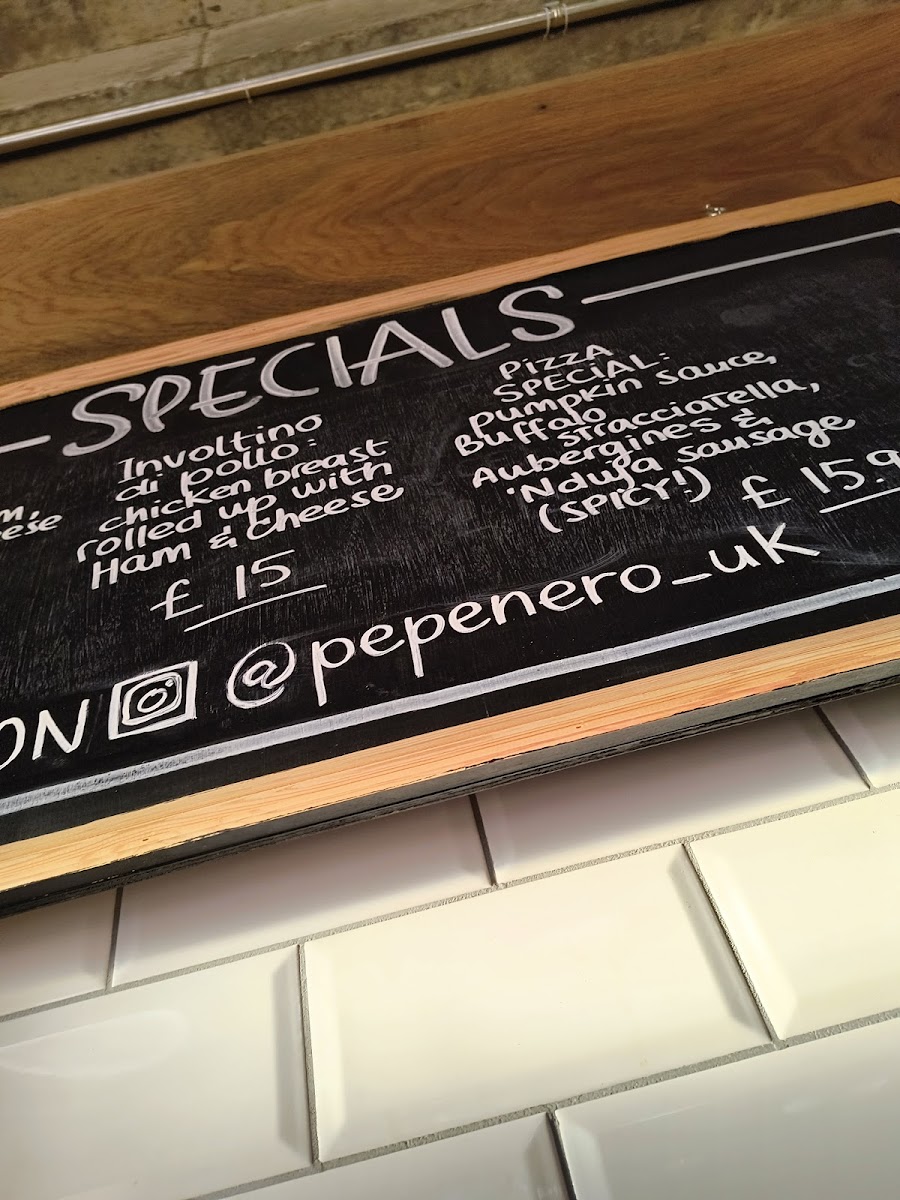 SPECIALS
Involtino
di pollo:
chicken breast
rolled up with
Ham & cheese
£ 15
Pizza
SPECIAL:
pumpkin sauce,
Buffalo
stracciatella,
Aubergines &
'Nduja sausage
(SPICY!)
£ 15.9
ON @pepenero_uk